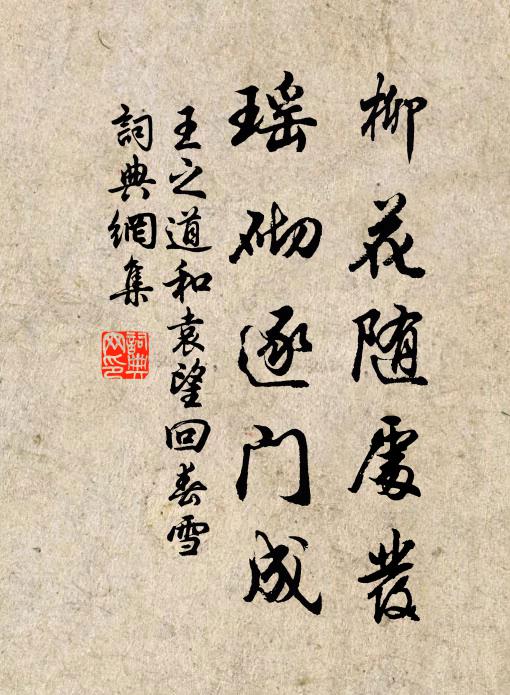 柳花随處發
瑶砌逐门成
王之道和袁望回春雪
詞典網集
詞典網印